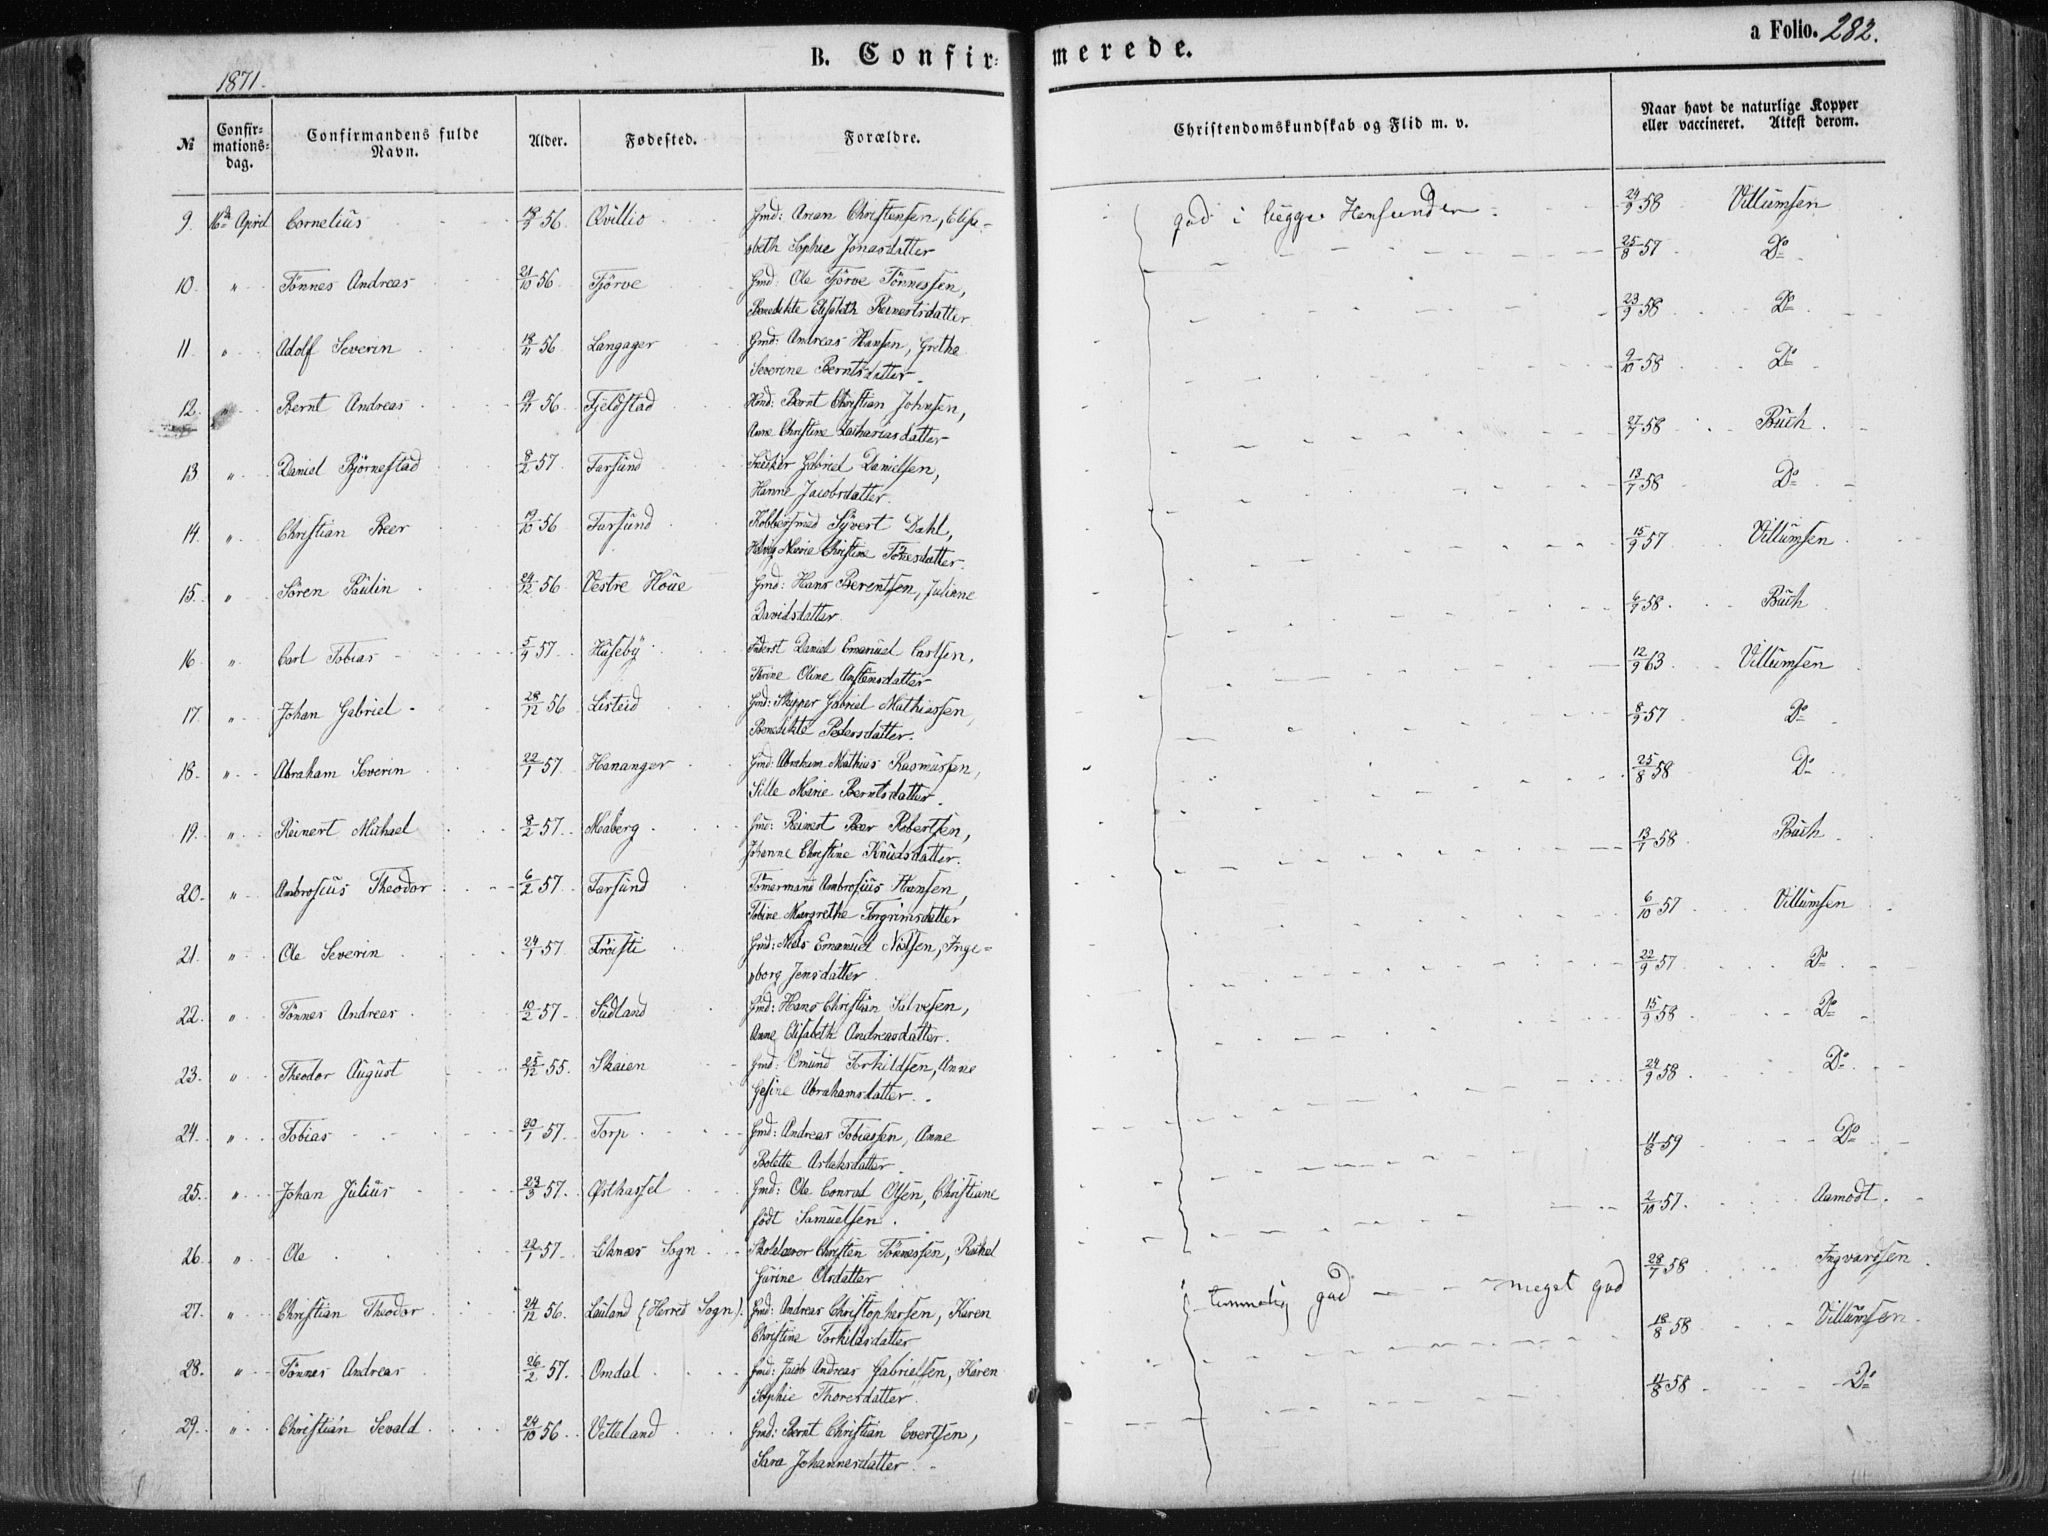 a Folio. 282.
B. Confir-
merede.
1871.
№ Confir-mations-dag. Confirmandens fulde Navn. Alder. Fødested. Forældre. Christendomskundskab og Flid m. v. Naar havt de naturlige Kopper eller vaccineret. Attest derom.
9. 16de April Cornelius 56 Qvillio Gmd: Anan Christensen, Elisa-
beth Sophie Jonasdatter
10. " Tönnes Andreas 21/10 56 Tjörve Gmd: Ole Tjörve Tönnessen,
Benedikte Elisabeth Reinertsdatter
11 " Adolf Severin 18/11 56 Langager Gmd: Andreas Hansen, Grethe
Severine Berntsdatter
12. " Bernt Andreas 19/11 56 Fjeldstad Hmd: Bernt Christian Johnsen,
Anne Christine Zachariasdatter
13 " Daniel Björnestad 8/2 57. Farsund Snedker Gabriel Danielsen,
Hanne Jacobsdatter.
14. " Christian Beer 19/10 56 Farsund Kobbersmed Syvert Dahl,
Hedvig Marie Christine datter.
15. " Sören Paulin 24/12 56 Vestre Houe Gmd: Hans Berentsen, Juliane
Davidsdatter.
16 " Carl Tobias 57. Huseby Inderst Daniel Emanuel Carlsen,
Thrine Oline Anstensdatter
17. " Johan Gabriel 28/12 56 Listeid Gmd: Skipper Gabriel Mathiassen,
Benedikte Pedersdatter.
18. " Abraham Severin 22/1 57 Hananger Gmd: Abraham Mathias Rasmussen,
Sille Marie Berntsdatter.
19. " Reinert Michael 8/2 57. Meberg Gmd: Reinert Beer Robertsen,
Johanne Christine Knudsdatter.
20. " Ambrosius Theodor 6/2 57. Farsund Tömermand Ambrosius Hansen,
Tobine Margrethe Torgrimsdatter
21. " Ole Severin 24/1 57. Tröisti Gmd: Niels Emanuel Nilsen, Inge-
borg Jensdatter
22. " Tönnes Andreas. 10/2 57. Sudland Gmd: Hans Christian Salvesen,
Anne Elisabeth Andreasdatter.
23. " Theodor August 25/12 55. Skaien Gmd: Omund Torkildsen, Anne
Gesine Abrahamsdatter.
24. " Tobias 30/1 57. Torp Gmd: Andreas Tobiassen, Anne
Bolette Aslaksdatter
25. " Johan Julius 23/3 57. Østhassel Gmd: Ole Conrad Olsen, Christiane
födt Samuelsen.
26. " Ole 22/1 57. Leknæs Sogn Skolelærer Christen Tönnessen, Rachel
Gurine Olsdatter
27. " Christian Theodor 24/12 56. Lauland (Herred Sogn). Gmd: Andreas Christophersen, Karen
Christine Torkildsdatter
28. " Tönnes Andreas 26/2 57. Omdal Gmd: Jacob Andreas Gabrielsen, Karen
Sophie Thoresdatter.
29. " Christian Sevald 24/10 56 Vetteland Gmd: Bernt Christian Evertsen,
Sara Johannesdatter.
god i begge Hensunder. 24/9 58 Villumsen
25/8 57 Do
23/9 58 Do
9/10 58 Do
27/7 58 Buch.
13/7 58 Do
15/9 57 Villumsen
58. Buch
12/9 63 Villumsen
8/9 57 Do
25/8 58 Do
13/1 58 Buch
6/10 57 Villumsen
22/9 57 Do
15/9 58 Do
24/9 58 Do
11/8 59 Do
2/10 57. Aamodt.
28/7 58 Ingvardsen.
temmelig god meget god 18/8 58 Villumsen.
11/8 58 Do